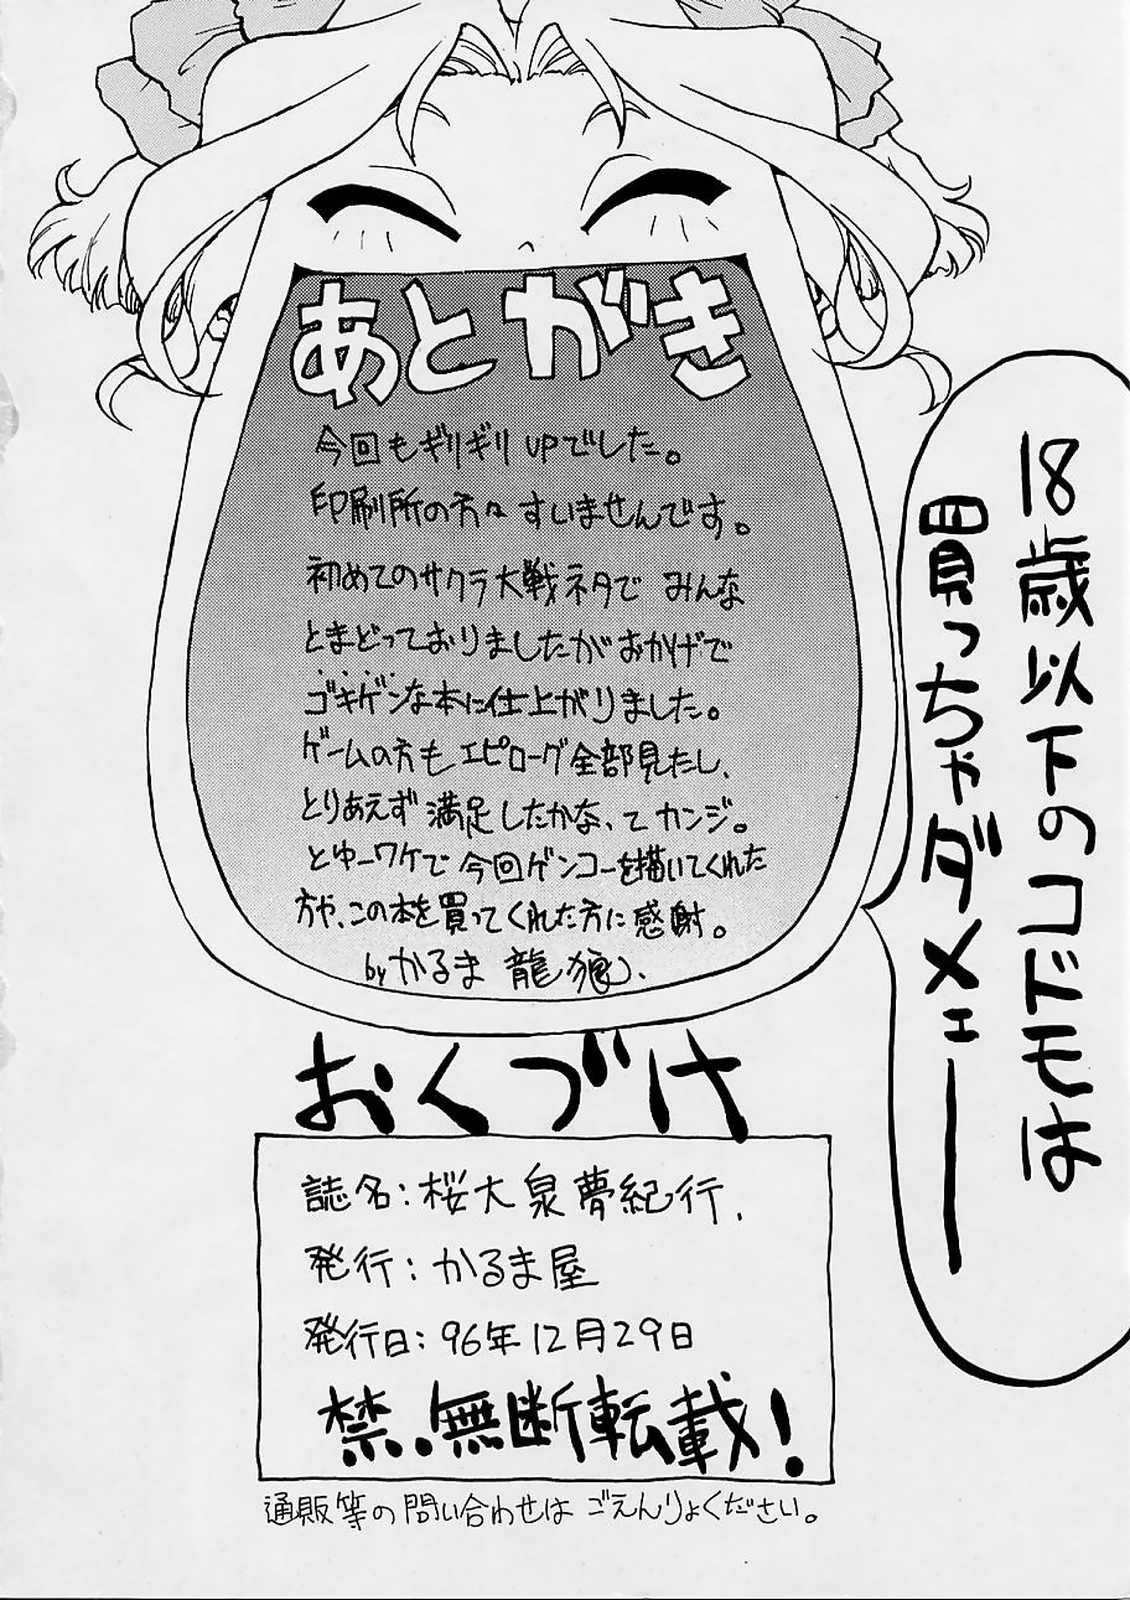 あとがき
今回もギリギリUPでした。
印刷所の方々すいませんです。
初めてのサクラ大戦ネタでみんな
とまどっておりましたがおかげで
ゴキゲンな本に仕上がりました。
ゲームの方もエピローグ全部見たし、
とりあえず満足したかな、てカンジ。
とゆーワケで今回ゲンコーを描いてくれた
方や、この本を買ってくれた方に感謝。
by かるま龍狼、
18歳以下のコドモは
買っちゃダメェー
おくづけ
誌名：桜大泉夢紀行、
発行：かるま屋
発行日：96年12月29日
禁、無断転載！
通販等の問い合わせはごえんりょください。